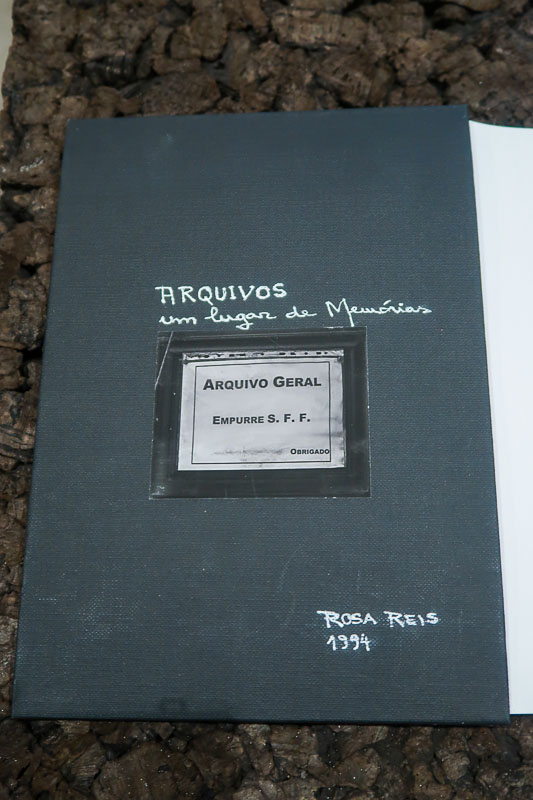 ARQUIVOS
um lugar de Memórias
ARQUIVO GERAL
EMPURRE S. F. F.
OBRIGADO
ROSA REIS
1994